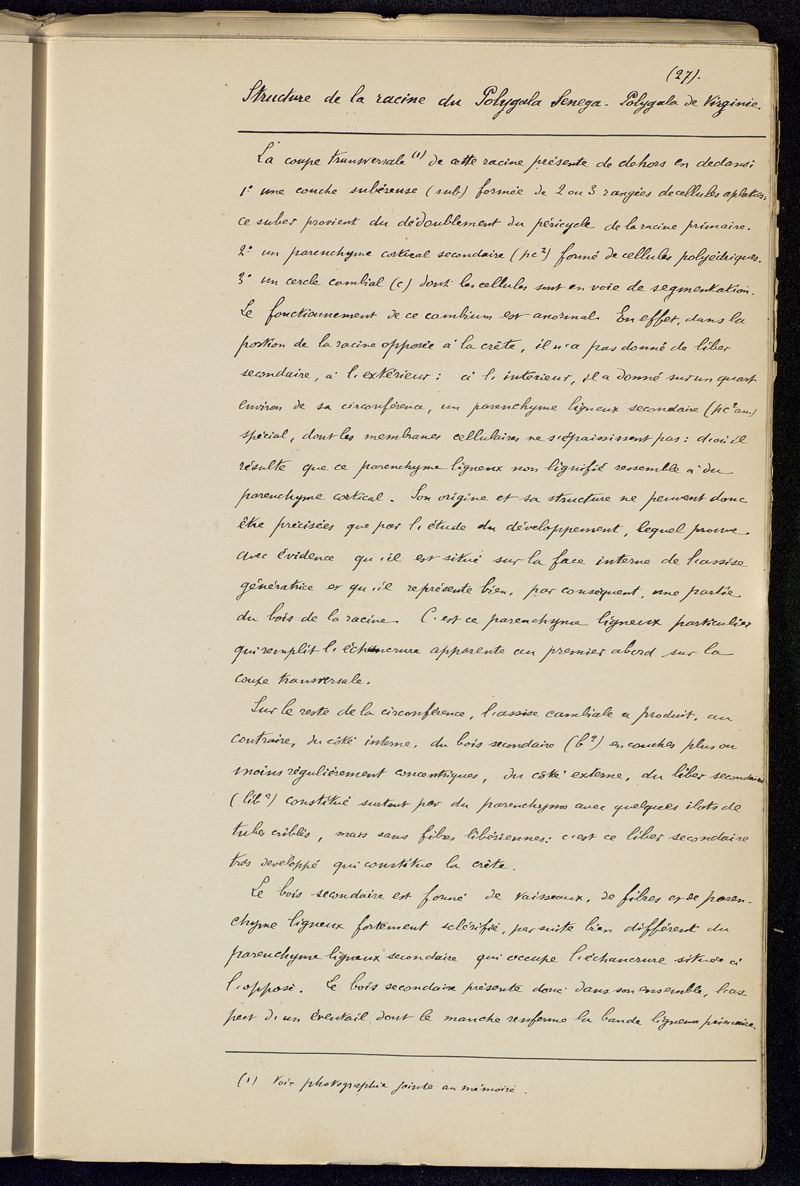 (27).
Structure de la racine du Polygala Senega - Polygala de Virginie.
La coupe transversale (1) de cette racine présente de dehors en dedans:
1° une couche subéreuse (sub.) formée de 2 ou 3 rangées de cellules aplaties.
ce suber provient du dédoublement du péricycle de la racine primaire.
2° un parenchyme cortical secondaire (pc²) formé de cellules polyédriques.
3° un cercle cambial (c) dont les cellules sont en voie de segmentation.
Le fonctionnement de ce cambium est anormal. En effet, dans la
portion de la racine opposée à la crête, il n'a pas donné de liber
secondaire, à l'extérieur: à l'intérieur, il a donné sur un quart
environ de sa circonférence, un parenchyme ligneux secondaire (pc² an.)
spécial, dont les membranes cellulaires ne s'épaississent pas: d'où il
résulte que ce parenchyme ligneux non lignifié ressemble à du
parenchyme cortical. Son origine et sa structure ne peuvent donc
être précisées que par l'étude du développement, lequel prouve
avec évidence qu'il est situé sur la face interne de l'assise
génératrice et qu'il représente bien, par conséquent, une partie
du bois de la racine. C'est ce parenchyme ligneux particulier
qui remplit l'échancrure apparente au premier abord sur la
coupe transversale.
Sur le reste de la circonférence, l'assise cambiale a produit, au
contraire, du côté interne, du bois secondaire (b²) en couches plus ou
moins régulièrement concentriques, du côté externe, du liber secondaire
(lib²) constitué surtout par du parenchyme avec quelques ilots de
tubes criblés, mais sans fibres libériennes: c'est ce liber secondaire
très developpé qui constitue la crête.
Le bois secondaire est formé de vaisseaux, de fibres et de paren-
chyme ligneux fortement sclérifié, par suite bien différent du
parenchyme ligneux secondaire qui occupe l'échancrure située à
l'opposé. Le bois secondaire présente donc dans son ensemble, l'as
pect d'un éventail dont le manche renferme la bande ligneuse primaire.
(1) Voir photographie jointe au mémoire.